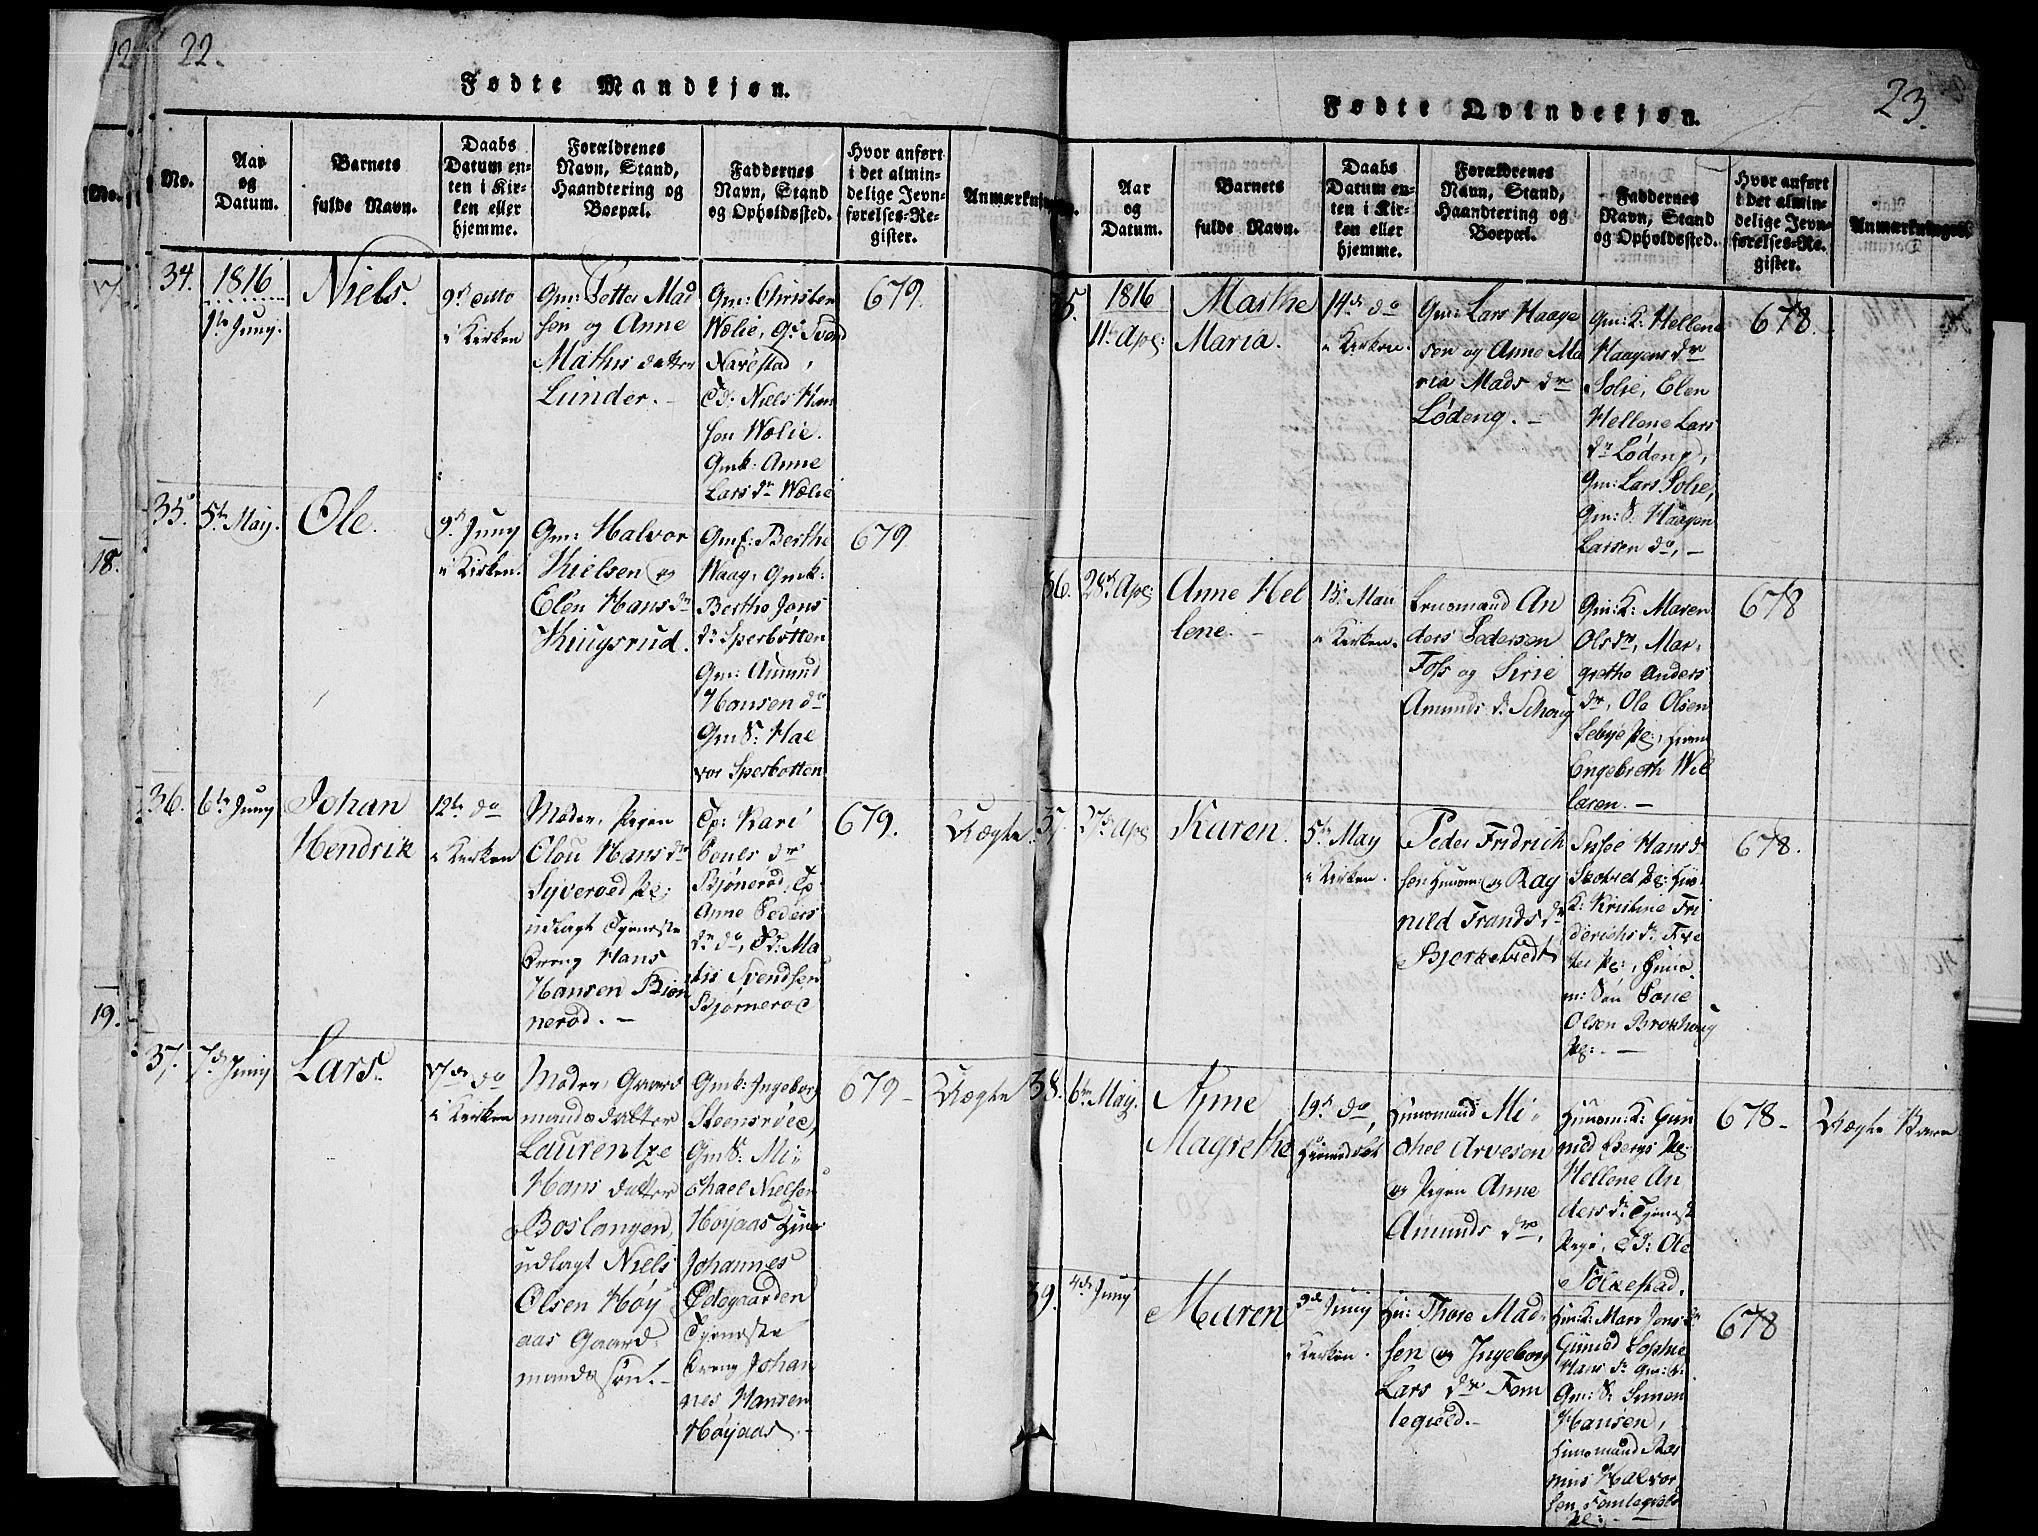 22.
Fødte Mandkjøn.
No.
Aar
og
Datum.
Barnets
fulde Navn.
Daabs
Datum en-
ten i Kir-
ken eller
hjemme.
Forældrenes
Navn, Stand,
Haandtering og
Boepæl.
Faddernes
Navn, Stand
og Opholdssted.
Hvor anført
i det almin-
delige Jevn-
førelses-Re-
gister.
Anmærkninger.
34.
1816
1te Juny.
Niels.
9d ditto
i Kirken
Gm: Petter Mad
sen og Anne
Mathis datter
Lunder. -
Gm: Christen
Wølie,
Narestad,
Niels Han
sen Wølie.
Gmk: Anne
Lars dr Wølie
679.
35.
5te May.
Ole.
9d Juny
i Kirken.
Gm: Halvor
Nielsen og
Elen Hans dr
Kiugsrud.
Gmk: Berthe
Waag, Gmk:
Berthe Jons
dr Sperbotten
Gm: Amund
Hansen do
GmS: Hal
vor Sperbotten
679
36.
6te Juny
Johan
Hendrik
12te do
i Kirken
Moder, Pigen
Elou Hans dr
Syverød
udlagt Tjeneste
Dreng Hans
Hansen Biør
nerød. -
Kari
Pouls dr
Bjønerød,
Anne Peders
dr do, Ma
this Svendsen
Bjørnerød
679.
Uægte.
37.
7de Juny
Lars.
17de do
i Kirken
Moder, Gaard
mands datter
Laurentze
Hans datter
Boslangen,
udlagt Niels
Olsen Høy
aas Gaard
mands søn. -
Gmk: Ingeborg
Steensrød,
GmS: Mi
chael Nielsen
Høyaas
Johannes
Ødegaarden
Tjeneste
Dreng Johan
nes Hansen
Høyaas. -
679 -
Uægte
18.
19.
23.
Fødte Qvindekjøn.
Aar
og
Datum.
Barnets
fulde Navn.
Daabs
Datum en-
ten i Kir-
ken eller
hjemme.
Forældrenes
Navn, Stand,
Haandtering og
Boepæl.
Faddernes
Navn, Stand
og Opholdssted.
Hvor anført
i det almin-
delige Jevn-
førelses-Re-
gister.
Anmærkninger.
35.
1816
11te Apr:
Marthe
Maria.
14de do
i Kirken.
Gm: Lars Haage
sen og Anne Ma
ria Mads dr
Lødeng. -
Gm: K: Hellene
Haagens dr
Solie, Elen
Hellene Lars
dr Lødeng,
Gm: Lars Solie,
Gm: S: Haagen
Larsen do, -
678.
36.
28de Apr:
Anne Hel
lene. -
i Kirken.
An
ders Pedersen
Foss og Sirie
Amunds dr Schoug
Gm: K: Maren
Ols dr, Mar-
grethe Anders
dr, Ole Olsen
Engebreth Wil
larsen. -
678
37.
Karen.
5te May
i Kirken.
Peder Fridrich
sen og Rag
nild Frands dr
Bjerketvedt
Hans dr
K: Kristine Fri
derichs dr
Olsen Brokhoug
678.
38.
6te May.
Anne
Magrethe
19de do,
Mi-
chel Arvesen
og Pigen Anne
Amunds dr,
K: Gun
nild Bergs
Hellene An
ders dr Tjeneste
Pige, Ole
Tockestad.
678 -
Uægte Barn
39.
4de Juny
Maren
9de Juny
i Kirken.
Thore Mad-
sen og Ingeborg
Lars dr Fom
legield. -
K: Mari Jons dr
Sophie
Hans dr
Gm: S: Simen
Hansen,
Ras
mus Halvor
sen Fomlegield
678